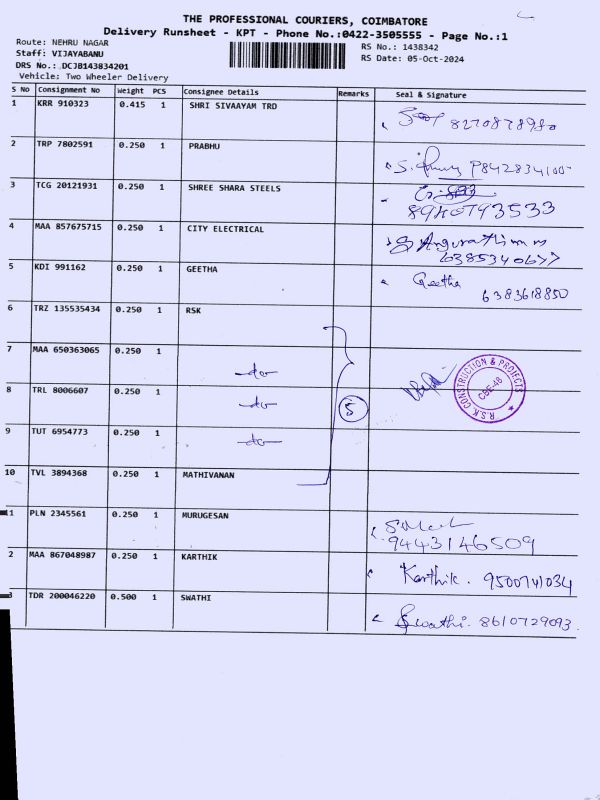 THE PROFESSIONAL COURIERS, COIMBATORE
Delivery Runsheet - KPT - Phone No.:0422-3505555 - Page No.:1
Route: NEHRU NAGAR
RS No.: 1438342
Staff: VIJAYABANU
RS Date: 05-Oct-2024
DRS No.: DCJB143834201
Vehicle: Two Wheeler Delivery
S No Consignment No Weight PCS Consignee Details Remarks Seal & Signature
1 KRR 910323 0.415 1 SHRI SIVAAYAM TRD
2 TRP 7802591 0.250 1 PRABHU
3 TCG 20121931 0.250 1 SHREE SHARA STEELS
4 MAA 857675715 0.250 1 CITY ELECTRICAL
6385340677
5 KDI 991162 0.250 1 GEETHA Geetha
6383618850
6 TRZ 135535434 0.250 1 RSK
7 MAA 650363065 0.250 1 -do-
8 TRL 8006607 0.250 1 -do- 5 R.S.K. CONSTRUCTION & PROJECTS CBE-46
9 TUT 6954773 0.250 1 -do-
10 TVL 3894368 0.250 1 MATHIVANAN
11 PLN 2345561 0.250 1 MURUGESAN
9443146509
2 MAA 867048987 0.250 1 KARTHIK Karthik. 9500741034
3 TDR 200046220 0.500 1 SWATHI Swathi. 8610729093.